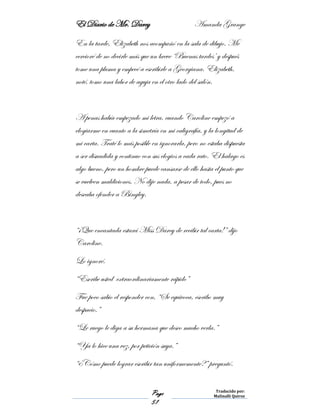 El Diario de Mr. Darcy Amanda Grange
En la tarde, Elizabeth nos acompañó en la sala de dibujo. Me
cercioré de no decirle más que un breve ‘Buenas tardes’ y después
tome una pluma y empecé a escribirle a Georgiana. Elizabeth,
noté, tomo una labor de aguja en el otro lado del salón.
Apenas había empezado mi letra, cuando Caroline empezó a
elogiarme en cuanto a la simetría en mi caligrafía, y la longitud de
mi carta. Traté lo más posible en ignorarla, pero no estaba dispuesta
a ser disuadida y continuo con sus elogios a cada rato. El halago es
algo bueno, pero un hombre puede cansarse de ello hasta el punto que
se vuelven maldiciones. No dije nada, a pesar de todo, pues no
deseaba ofender a Bingley.
“¡Que encantada estará Miss Darcy de recibir tal carta!” dijo
Caroline.
Lo ignoré.
“Escribe usted extraordinariamente rápido”
Fue poco sabio el responder con, “Se equivoca, escribo muy
despacio.”
“Le ruego le diga a su hermana que deseo mucho verla.”
“Ya lo hice una vez, por petición suya.”
“¿Cómo puede lograr escribir tan uniformemente?” preguntó.
Page
57
Traducido por:
Malinalli Quiroz